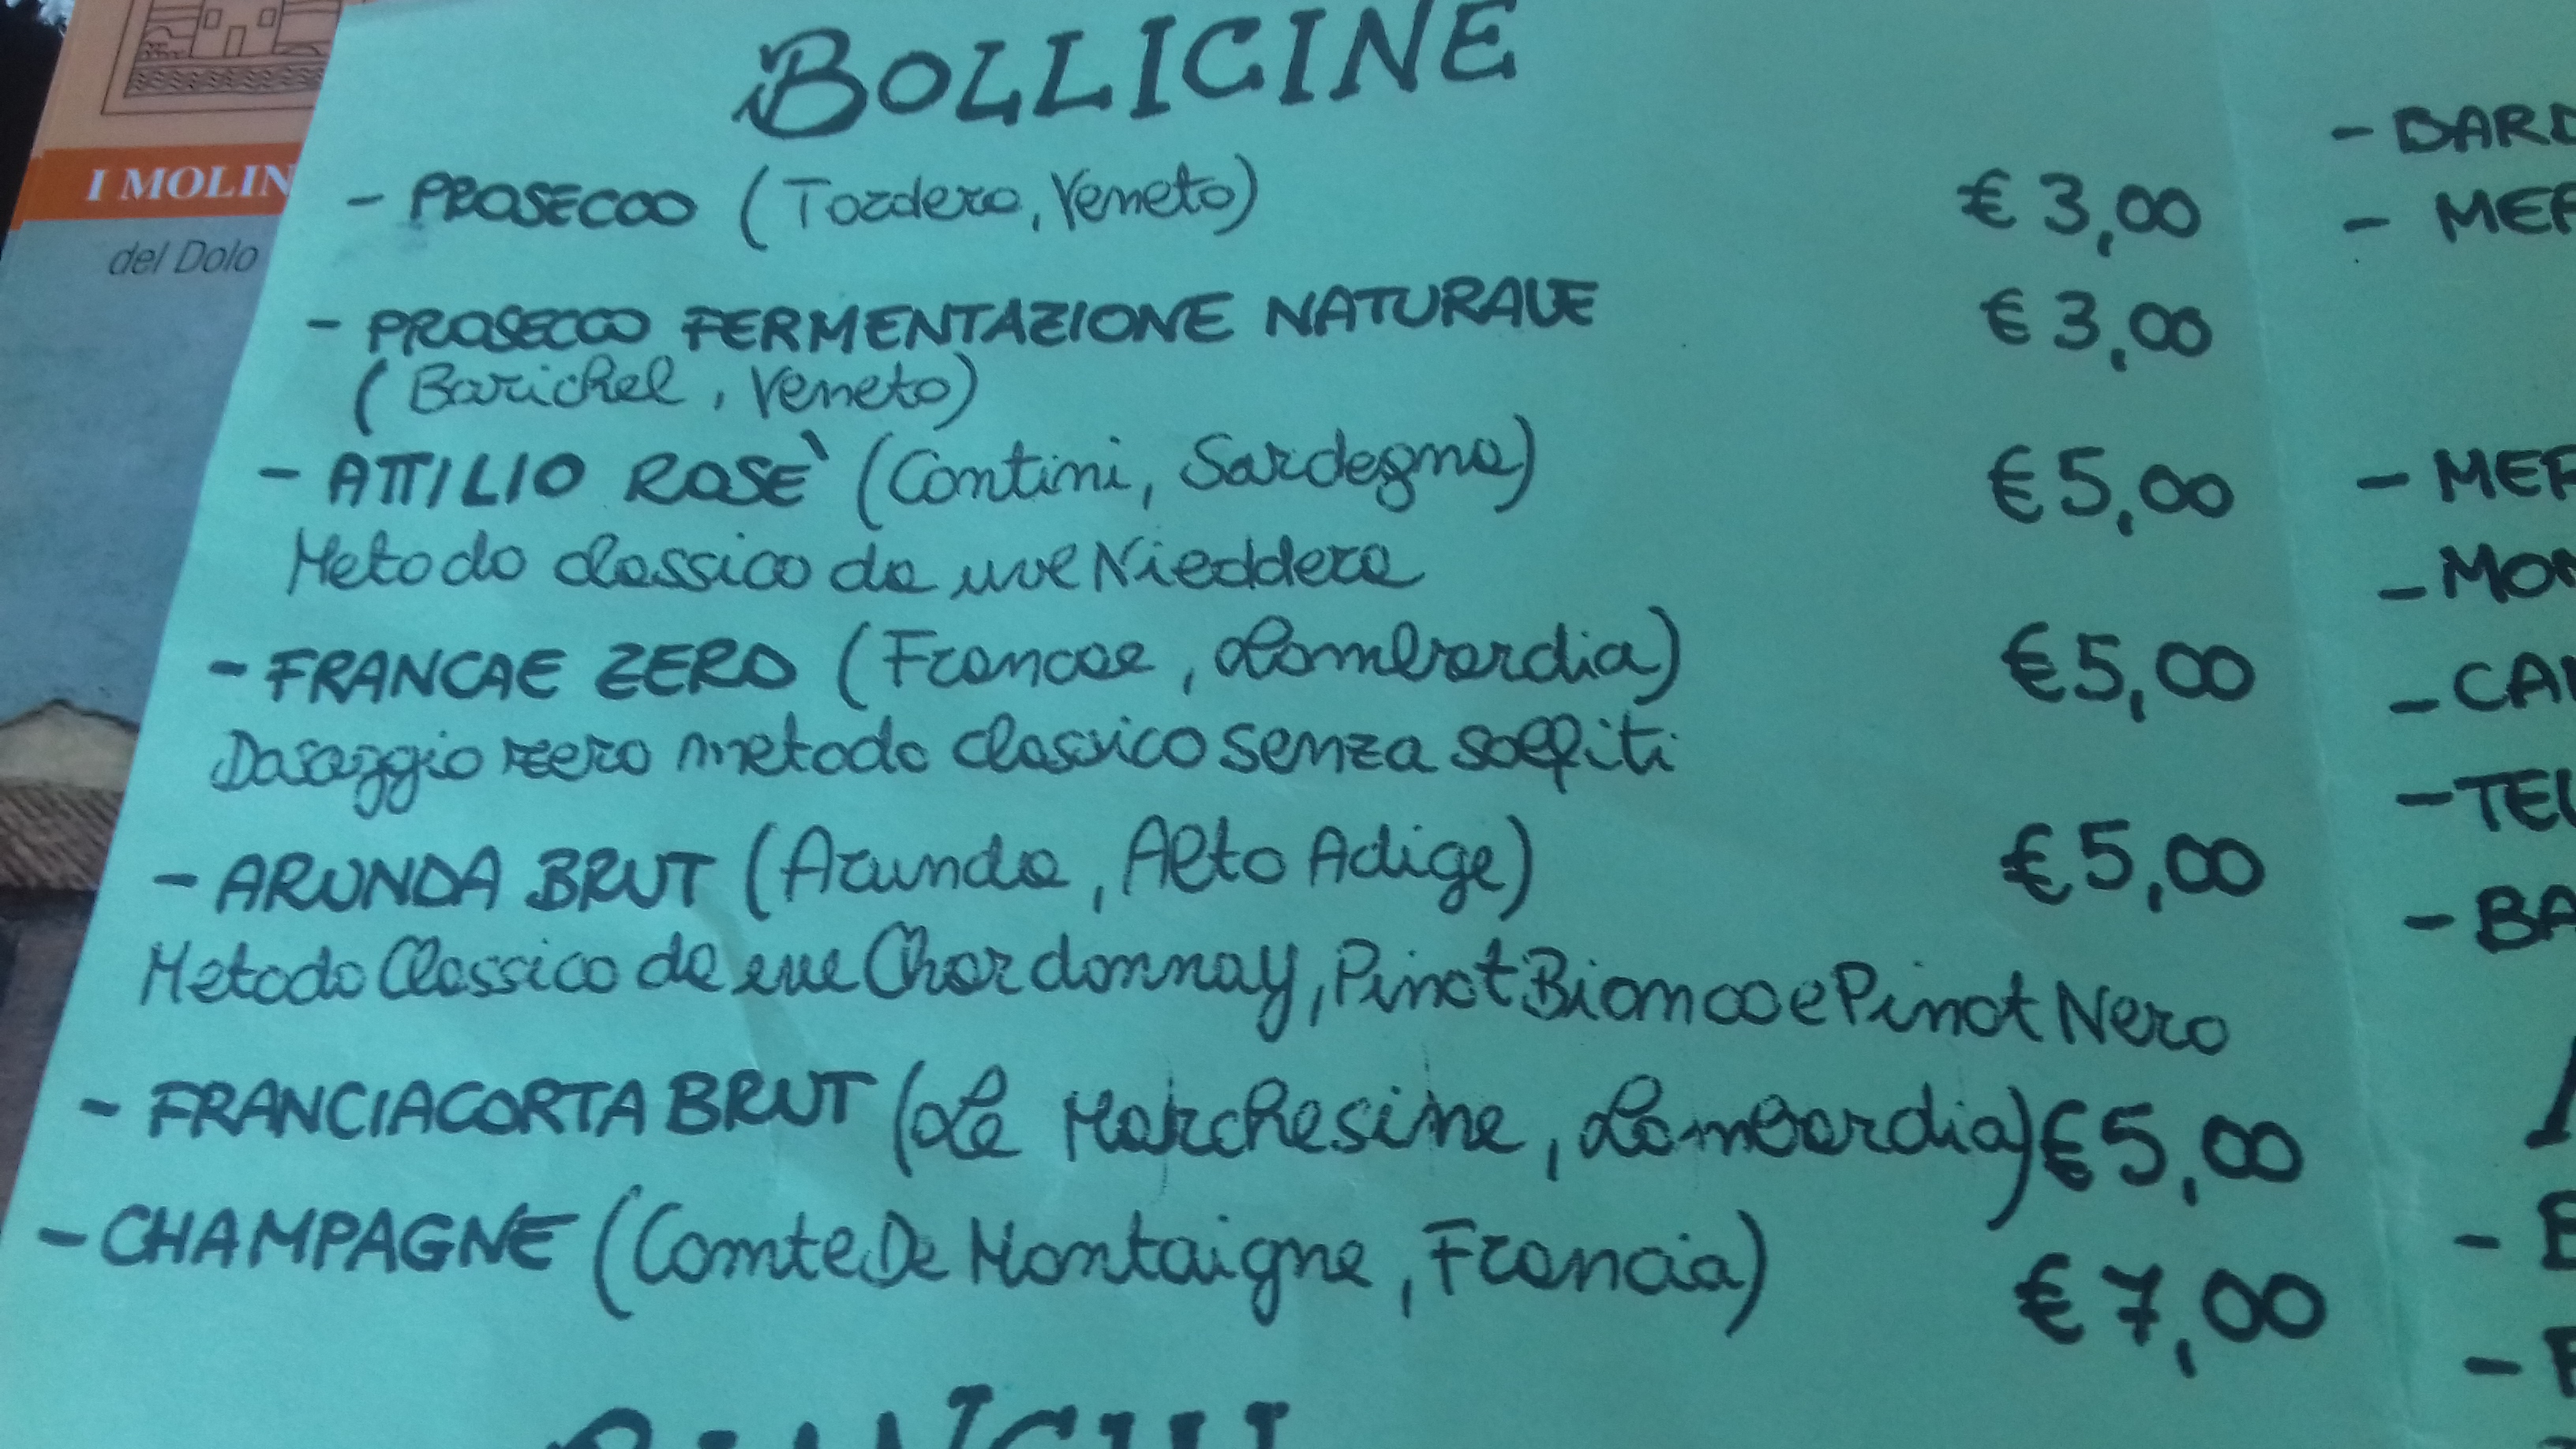 BOLLICINE
- PROSECCO (Tordera, Veneto) € 3,00
- PROSECCO FERMENTAZIONE NATURALE € 3,00
(Barichel, Veneto)
- ATTILIO ROSE` (Contini, Sardegna) € 5,00
Metodo classico da uve Nieddera
- FRANCAE ZERO (Francae, Lombardia) € 5,00
Dosaggio zero metodo classico senza solfiti
- ARUNDA BRUT (Arunda, Alto Adige) € 5,00
Metodo Classico da uve Chardonnay, Pinot Bianco e Pinot Nero
- FRANCIACORTA BRUT (Le Marchesine, Lombardia) € 5,00
- CHAMPAGNE (Comte De Montaigne, Francia) € 7,00
I MOLIN
del Dolo
- BARD
- MER
- MER
- MON
- CA
- TE
- BA